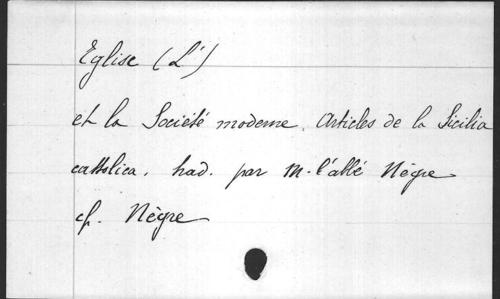 Eglise (L')
et la Société moderne. Articles de la Sicilia
cattolica. trad. par M. l'abbé Nègre
cf. Nègre